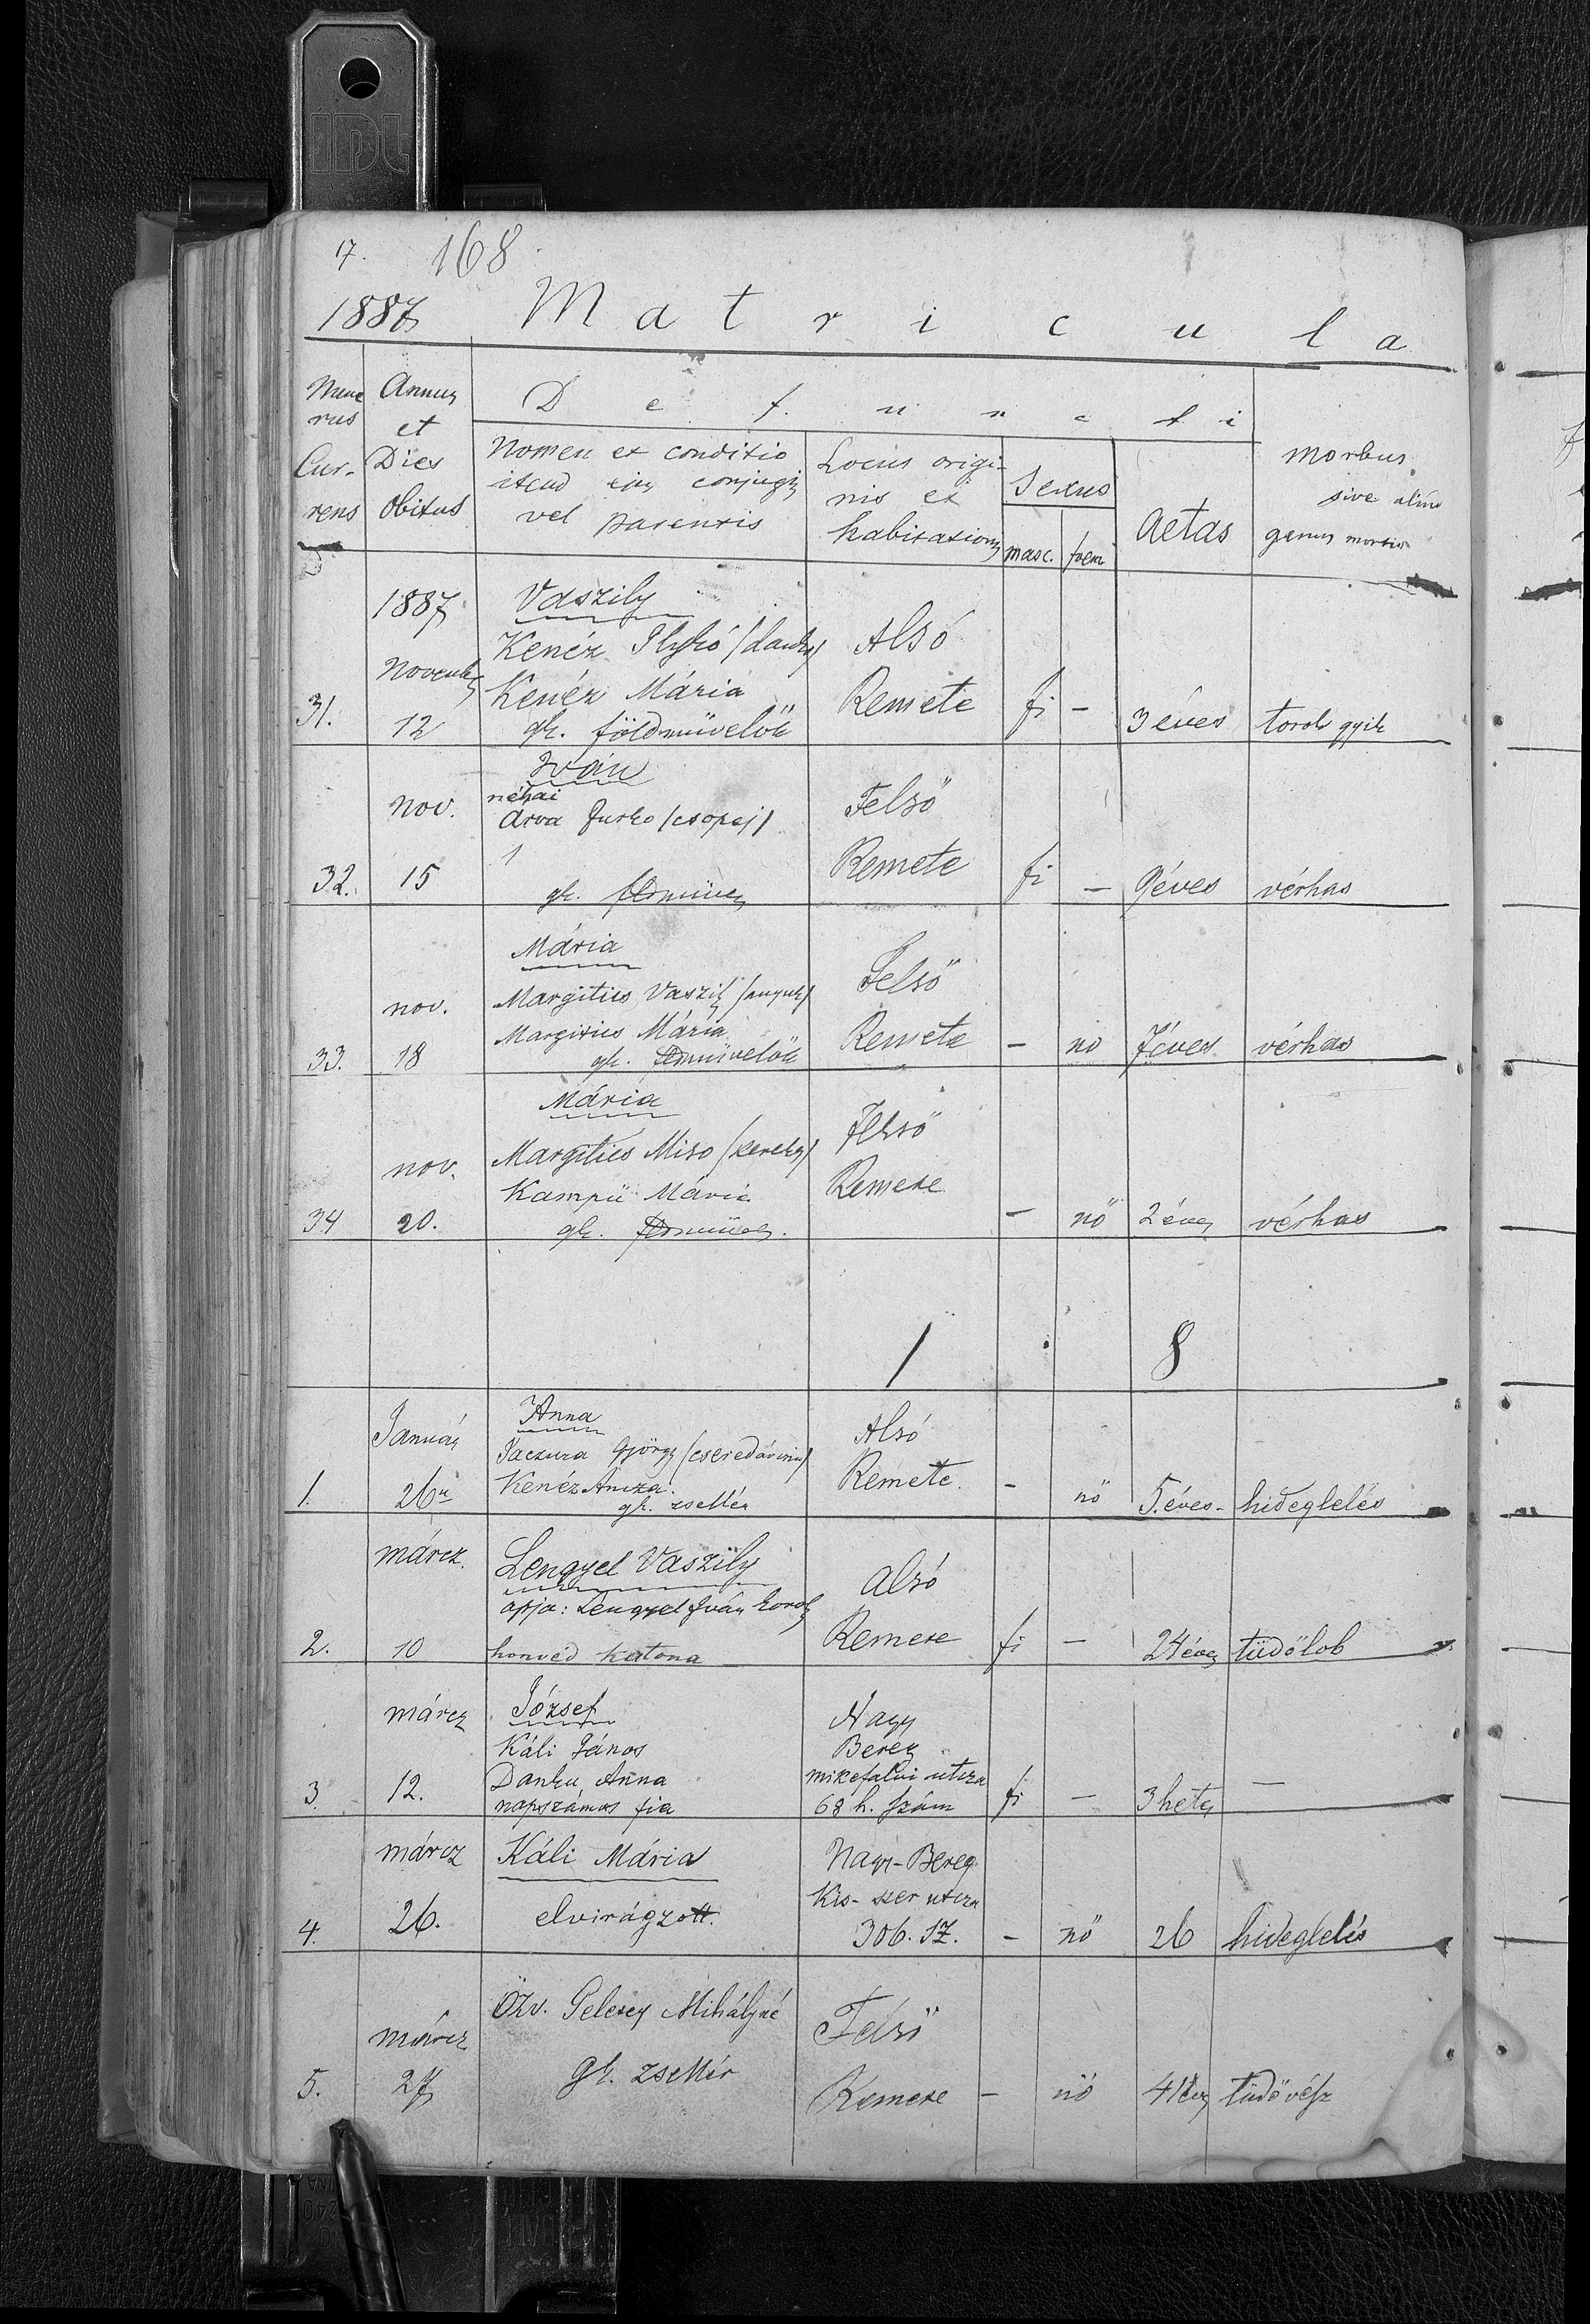 17. 168
1887 Matricula
Nume Annus Defuncti
rus et
Cur- Dies Nomen et conditio Locus origi- Sexus Aetas morbus
rens obitus itcud ejus conjugis nis et sive aliud
vel parentis habitationis masc. foem genus mortis
1887 Vaszily
Kenéz Ilykó Alsó
November Kenéz Mária Remete fi –
31. 12 gk. földmüvelők 3 éves torok gyik
Iván
nov. néhai Felső
árva Jurko (csopej)
Remete
32. 15 gk. fi – 9 éves vérhas
Mária
nov. Margitics Vaszily Felső
Margitics Mária Remete
33. 18 gk. – nő 7 éves vérhas
Mária
nov. Margitics Miso (kereky) Felső
Kampú Mária Remete
34 20. gk. – nő 2 éves vérhas
1 8
8
Január Anna Alsó
Paczura György
Kenéz Ancza Remete
1. 26án gk. zsellér – nő 5. éves – hideglelés
márcz. Lengyel Vaszily Alsó
apja: Lengyel Iván
2. 10 honvéd katona Remete fi – 24 éves tüdőlob
márcz József Nagy
Káli János Bereg
12. Danku Anna mikefalvi utcza
3. napszámos fia 68 h. szám fi – 3 hetes –
márcz Káli Mária Nagy-Bereg
Kis-szer utcza
4. 26. elvirágzott. 306. sz. – nő 26 hideglelés
Özv. Gelesey Mihályné Felső
márcz
5. 27 gk. zsellér Remete – nő 41 éves tüdővész